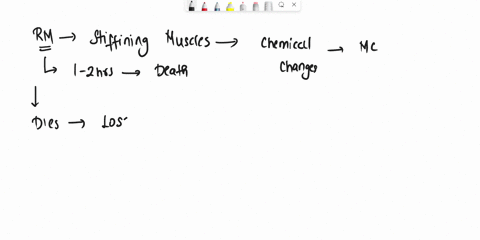 RM → Stiffining Muscles → Chemical Changes → MC
↳ 1-2 hrs → Death
↓
Dies → Los